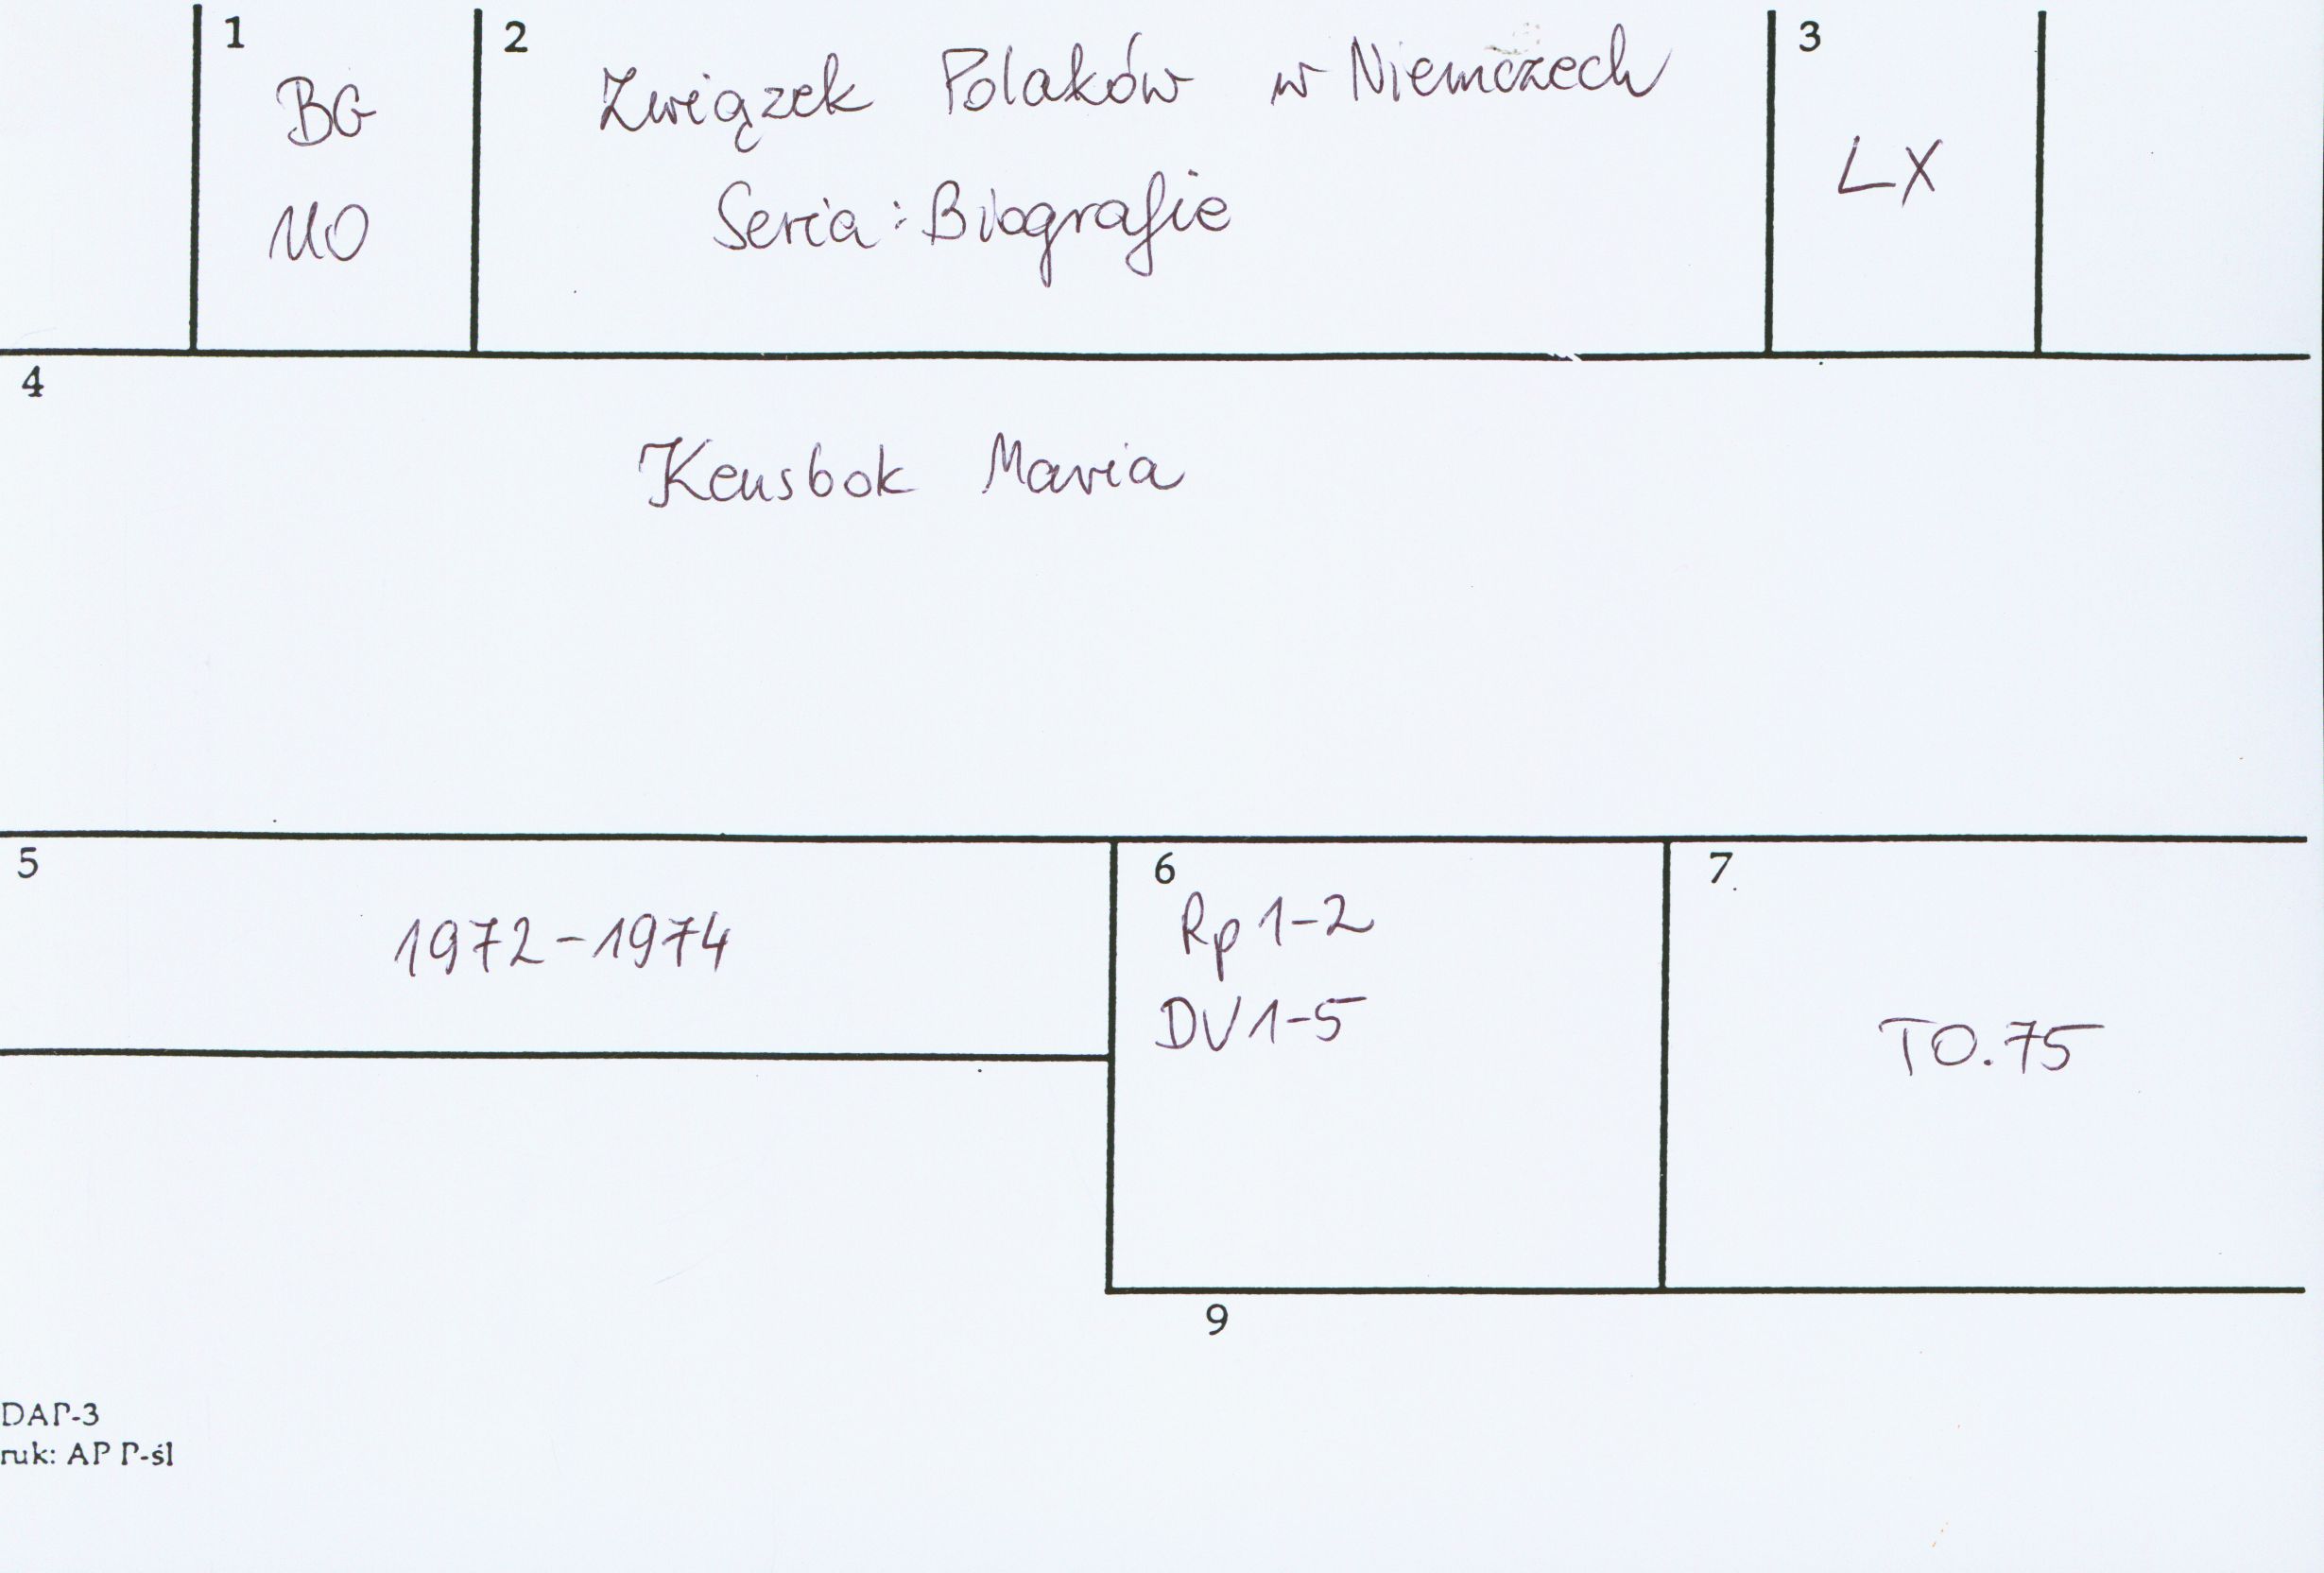 1
BG
110
2
Związek Polaków w Niemczech
Seria: Biografie
3
LX
4
Keusbok Maria
5
1972-1974
6
Rp 1-2
DV 1-5
7
TO.75
9
DAP-3
ruk: AP P-śl